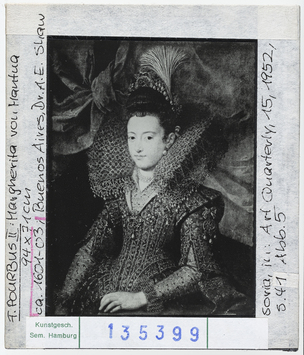 F. POURBUS II.: Margherita von Mantua
94 x 71 cm
ca. 1601-03, Buenos Aires, Dr. A. E. Shaw
Soria, in: Art Quarterly, 15, 1952,
S. 41, Abb. 5
Kunstgesch.
Sem. Hamburg
135399